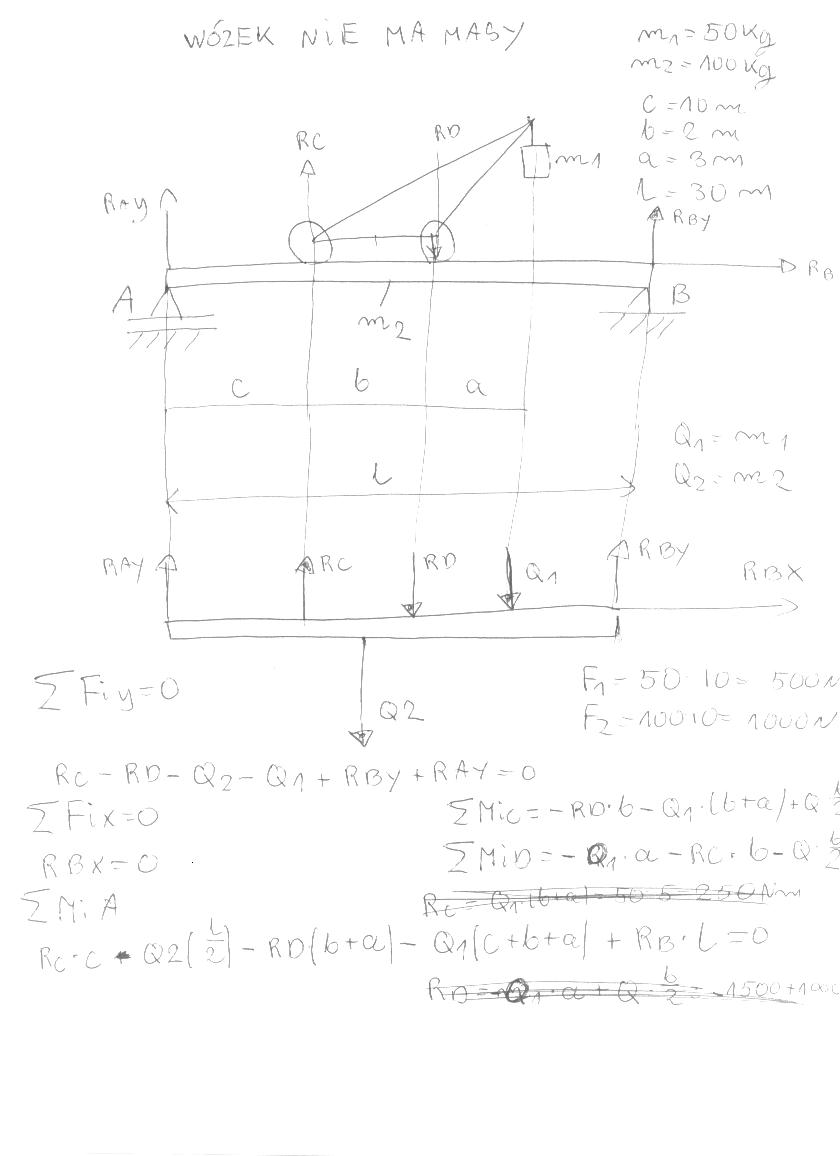 WÓZEK NIE MA MASY
m1 = 50 kg
m2 = 100 kg
c = 10 m
b = 2 m
a = 3 m
L = 30 m
RC
RD
m1
RAY
RBY
RB
A
B
m2
c b a
Q1 = m1
Q2 = m2
L
RAY RC RD Q1 RBY RBX
Q2
ΣFiy=0
F1 = 50·10 = 500N
F2 = 100·10 = 1000N
RC - RD - Q2 - Q1 + RBY + RAY = 0
ΣFix=0
ΣMiC = -RD·b - Q1·(b+a) + Q b/2
RBX = 0
ΣMiD = -Q1·a - RC·b - Q·b/2
ΣMiA
RC = Q1·(b+a) = 50·5 = 250Nm
RC·c - Q2(L/2) - RD(b+a) - Q1(c+b+a) + RB·L = 0
RD = -Q1·a + Q·b/2 = -1500+1000